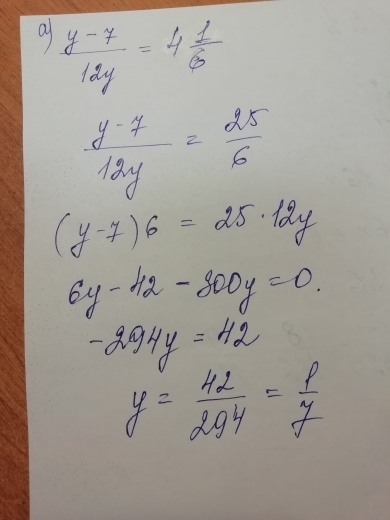 а) y - 7 / 12y = 4 1/6
y - 7 / 12y = 25 / 6
(y - 7) 6 = 25 · 12y
6y - 42 - 300y = 0.
- 294y = 42
y = 42 / 294 = 1 / 7